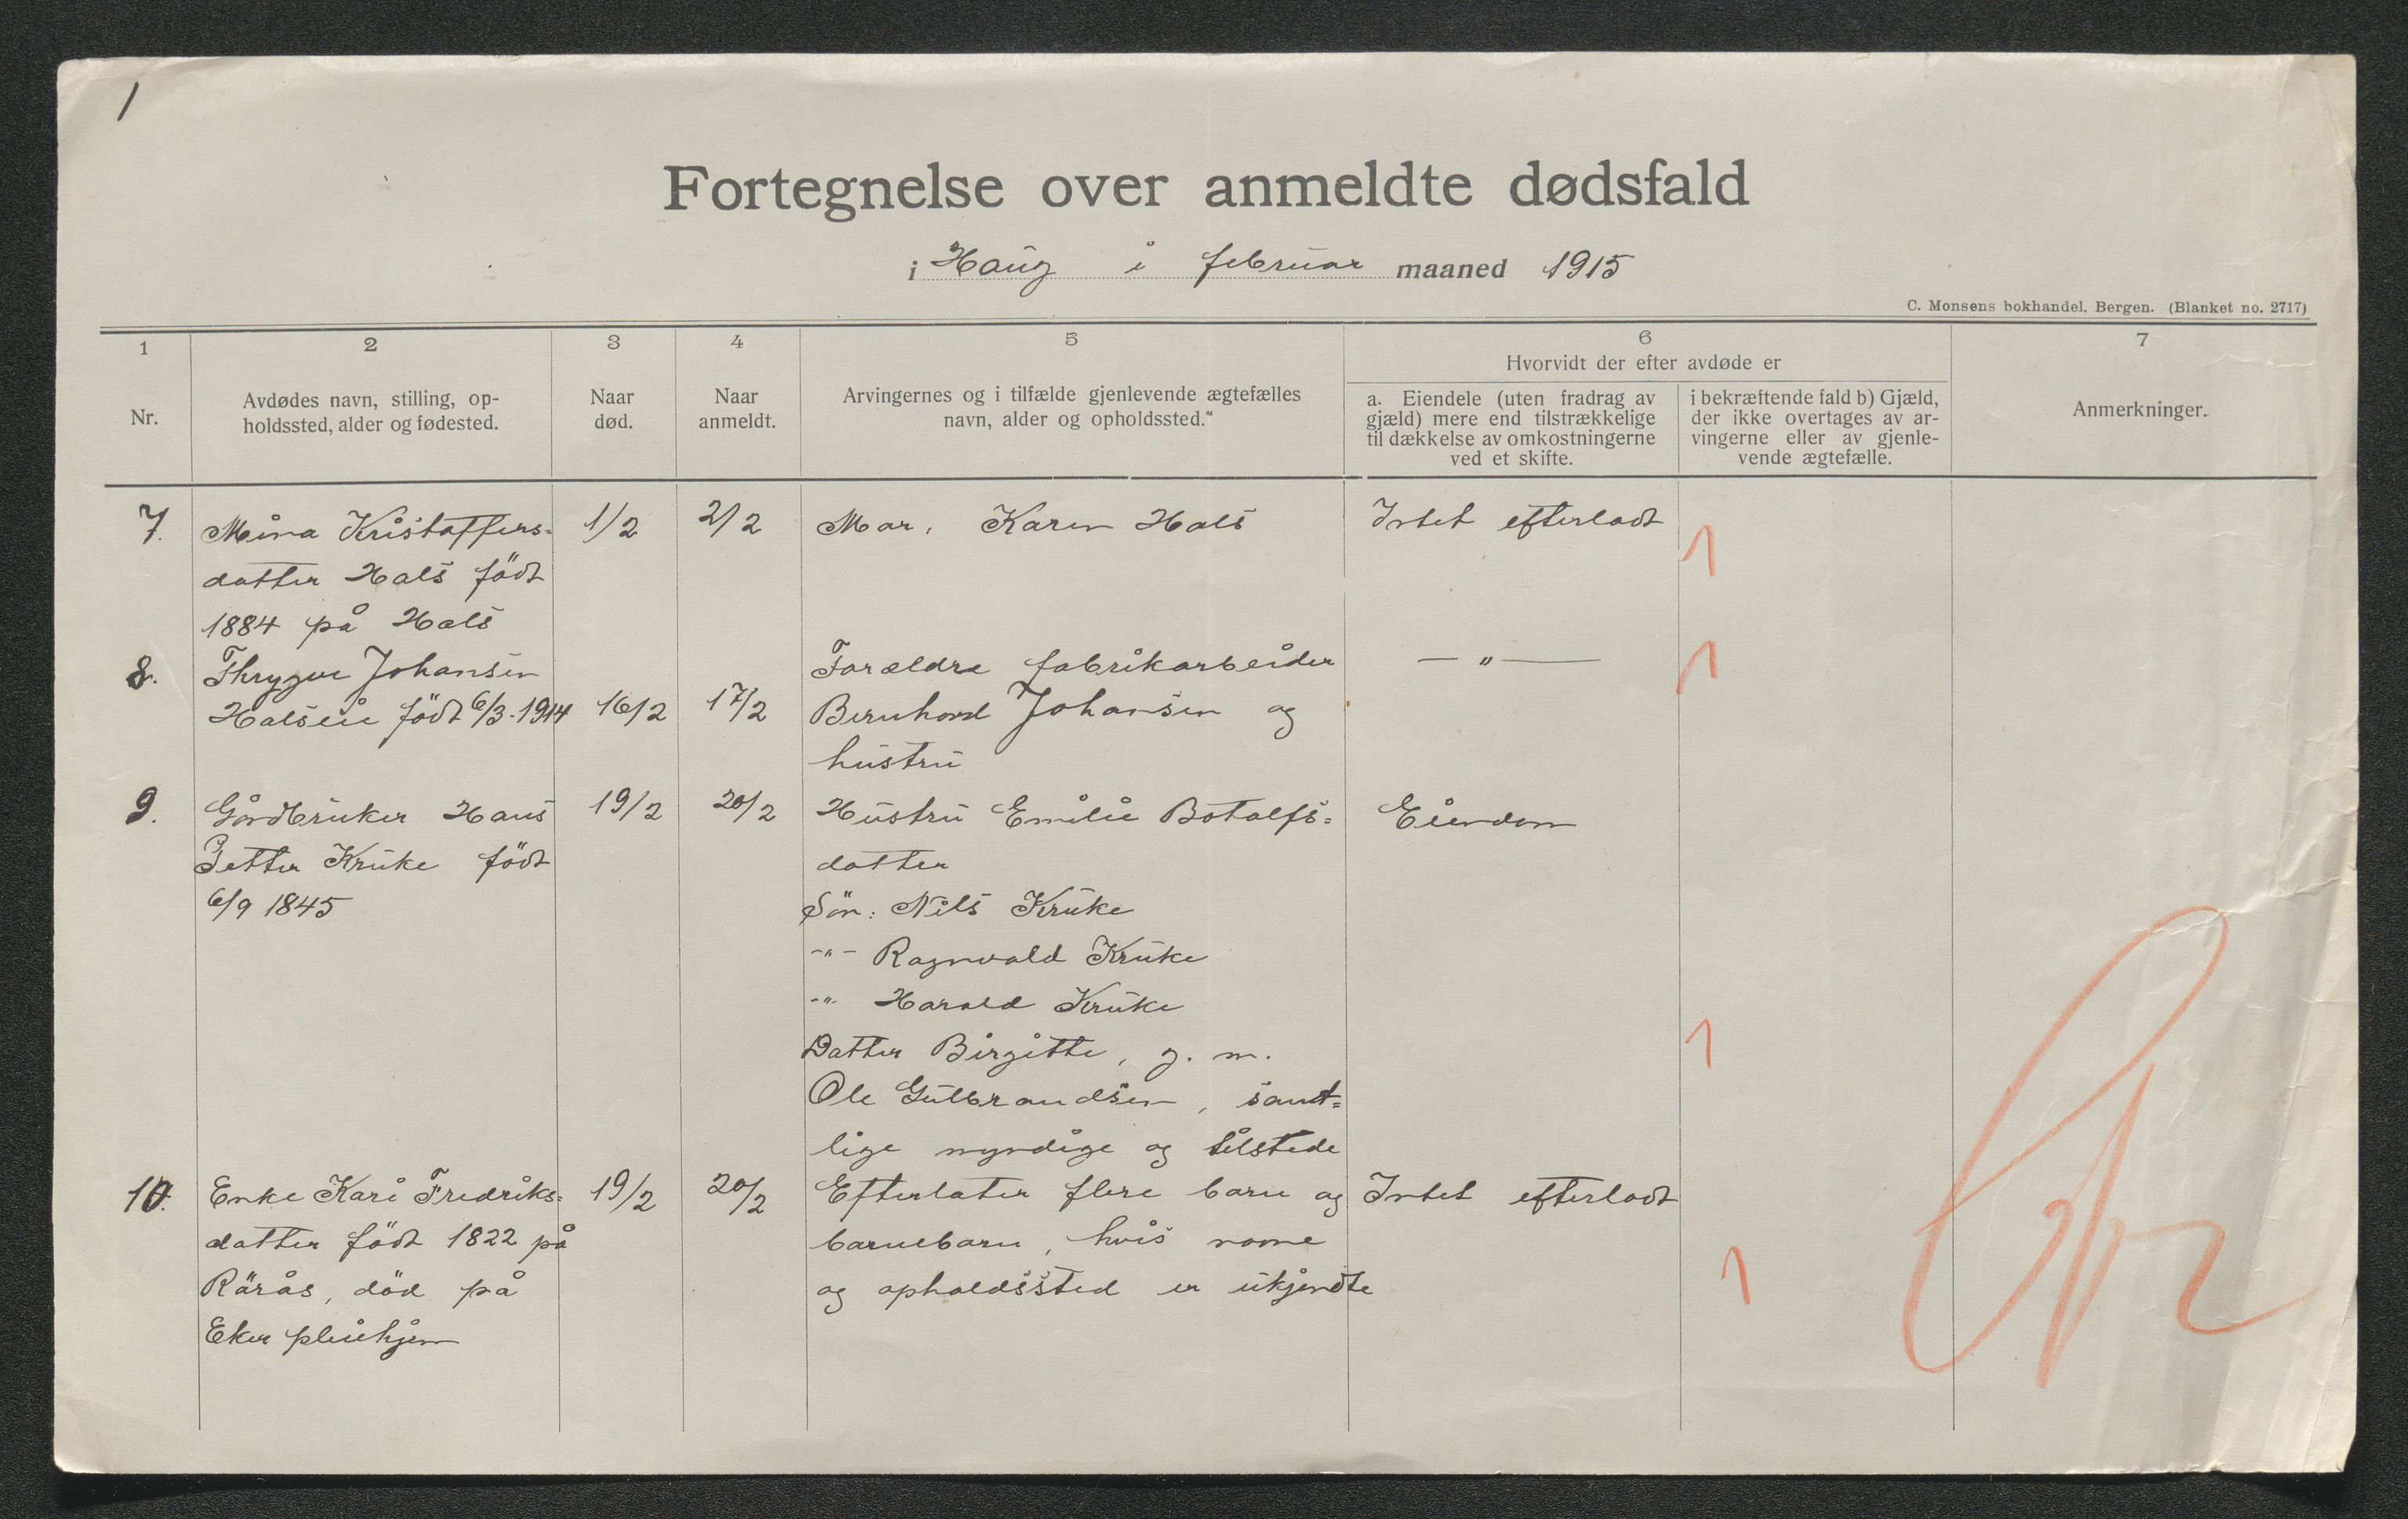 1
Fortegnelse over anmeldte dødsfald
i Haug i februar maaned 1915
C. Monsens bokhandel, Bergen. (Blanket no. 2717)
1
Nr.
2
Avdødes navn, stilling, op-
holdssted, alder og fødested.
3
Naar
død.
4
Naar
anmeldt.
5
Arvingernes og i tilfælde gjenlevende ægtefælles
navn, alder og opholdssted.
6
Hvorvidt der efter avdøde er
a. Eiendele (uten fradrag av
gjæld) mere end tilstrækkelige
til dækkelse av omkostningerne
ved et skifte.
i bekræftende fald b) Gjæld,
der ikke overtages av ar-
vingerne eller av gjenle-
vende ægtefælle.
7
Anmerkninger.
7. Mina Kristoffers= 1/2 2/2 Mor, Karen Hals Intet efterladt
datter Hals född
1884 på Hals
8. Thrygve Johansen Forældre fabrikarbeider — " —
Halseie född 6/3-1914 16/2 17/2 Bernhard Johansen og
hustru
9. Gårdbruker Hans 19/2 20/2 Hustru Emilie Botolfs= Eiendom
Petter Kruke född datter
6/9 1845 Sön: Nils Kruke
-"- Ragnvald Kruke
-"- Harald Kruke
Datter Birgitte, g. m.
Ole Gulbrandsen, samt=
lige myndige og tilstede
10. Enke Kari Fredriks= 19/2 20/2 Efterlater flere barn og Intet efterladt
datter född 1822 på barnebarn, hvis navne
Rärås, död på og opholdssted er ukjendte
Eker pleiehjem